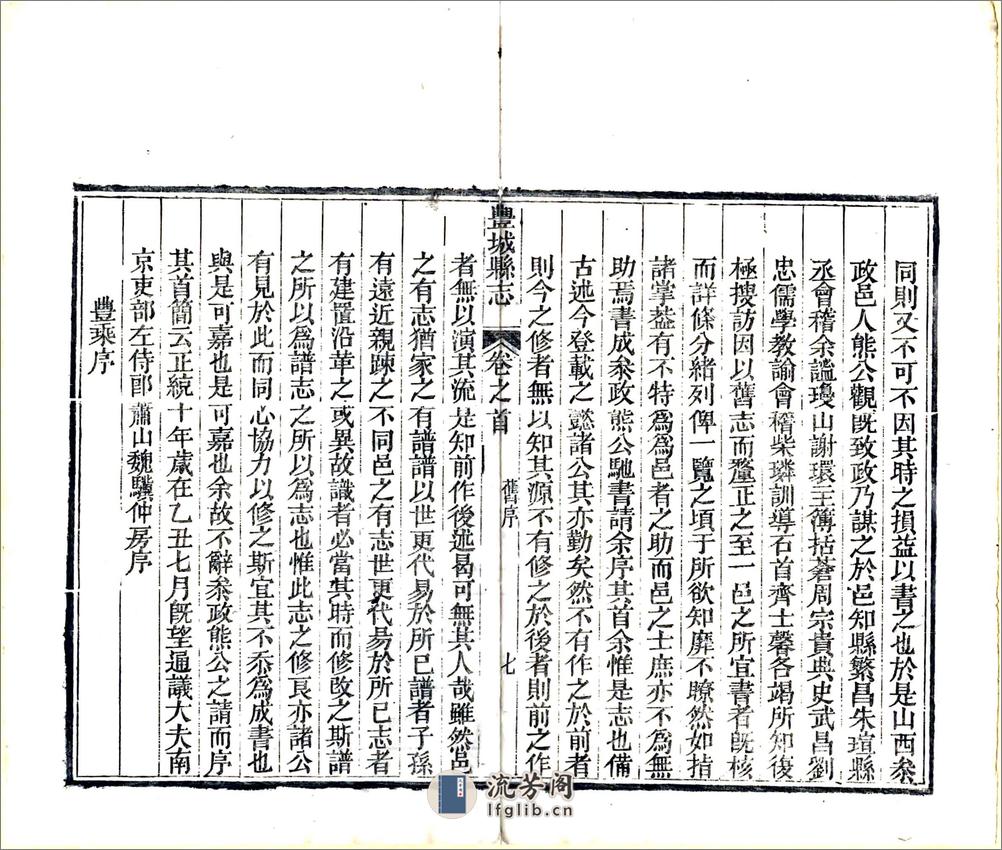 同則又不可不因其時之損益以書之也於是山西叅
政邑人熊公觀旣致政乃謀之於邑知縣繁昌朱瑄縣
丞會稽余謐瓊山謝環主簿括蒼周宗貴典史武昌劉
忠儒學教諭會稽柴璘訓導石首齊士馨各竭所知復
極搜訪因以舊志而釐正之至一邑之所宜書者旣核
而詳條分緒列俾一覽之頃于所欲知靡不瞭然如指
諸掌益有不特爲爲邑者之助而邑之士庶亦不爲無
助焉書成叅政熊公馳書請余序其首余惟是志也備
古述今登載之懿諸公其亦勤矣然不有作之於前者
則今之修者無以知其源不有修之於後者則前之作
豐城縣志 卷之首 舊序 七
者無以演其流是知前作後述曷可無其人哉雖然邑
之有志猶家之有譜譜以世更代易於所已譜者子孫
有遠近親踈之不同邑之有志世更代易於所已志者
有建置沿革之或異故識者必當其時而修改之斯譜
之所以爲譜志之所以爲志也惟此志之修良亦諸公
有見於此而同心協力以修之斯宜其不忝爲成書也
與是可嘉也是可嘉也余故不辭叅政熊公之請而序
其首簡云正統十年歲在乙丑七月旣望通議大夫南
京吏部左侍郎蕭山魏驥仲房序
豐乘序
流芳阁
lfglib.cn